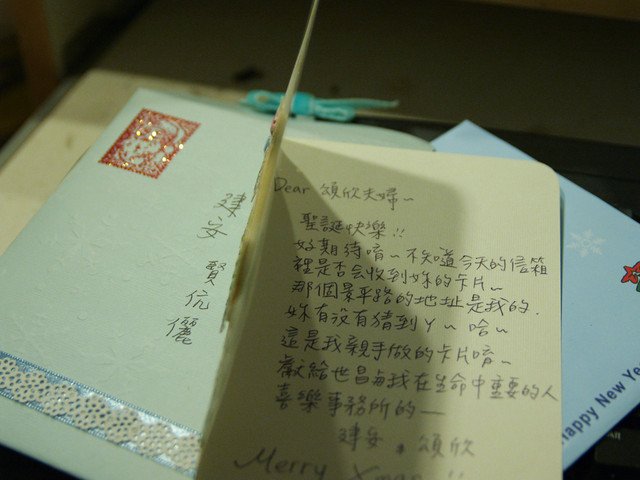 建安
賢
伉
儷
Dear 頌欣夫婦~
聖誕快樂!!
好期待唷~不知道今天的信箱
裡是否會收到妳的卡片~
那個景平路的地址是我的.
妳有沒有猜到ㄚ~哈~
這是我親手做的卡片唷~
獻給世昌與我在生命中重要的人
喜樂事務所的—
建安 & 頌欣
Merry Xmas !!
Happy New Ye